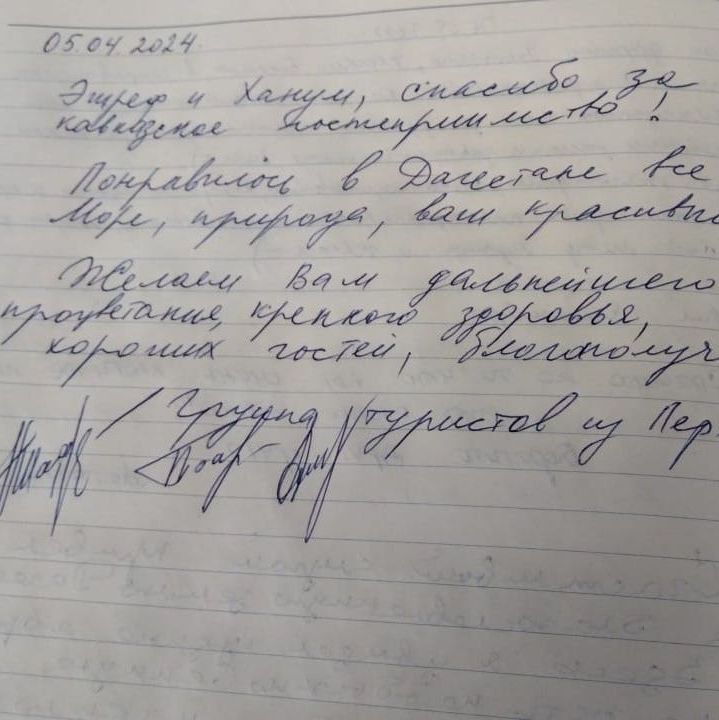 05.04.2024
Эшреф и Ханум, спасибо за
кавказское гостеприимство!
Понравилось в Дагестане все
Море, природа, ваш красивы
Желаем Вам дальнейшего
процветания, крепкого здоровья,
хороших гостей, благополуч
Группа туристов из Пер